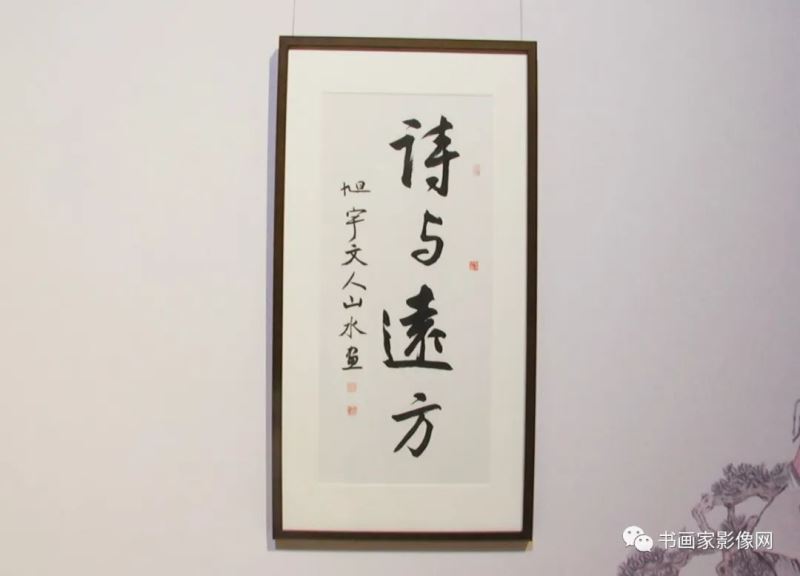 詩与遠方
旭宇文人山水画
书画家影像网